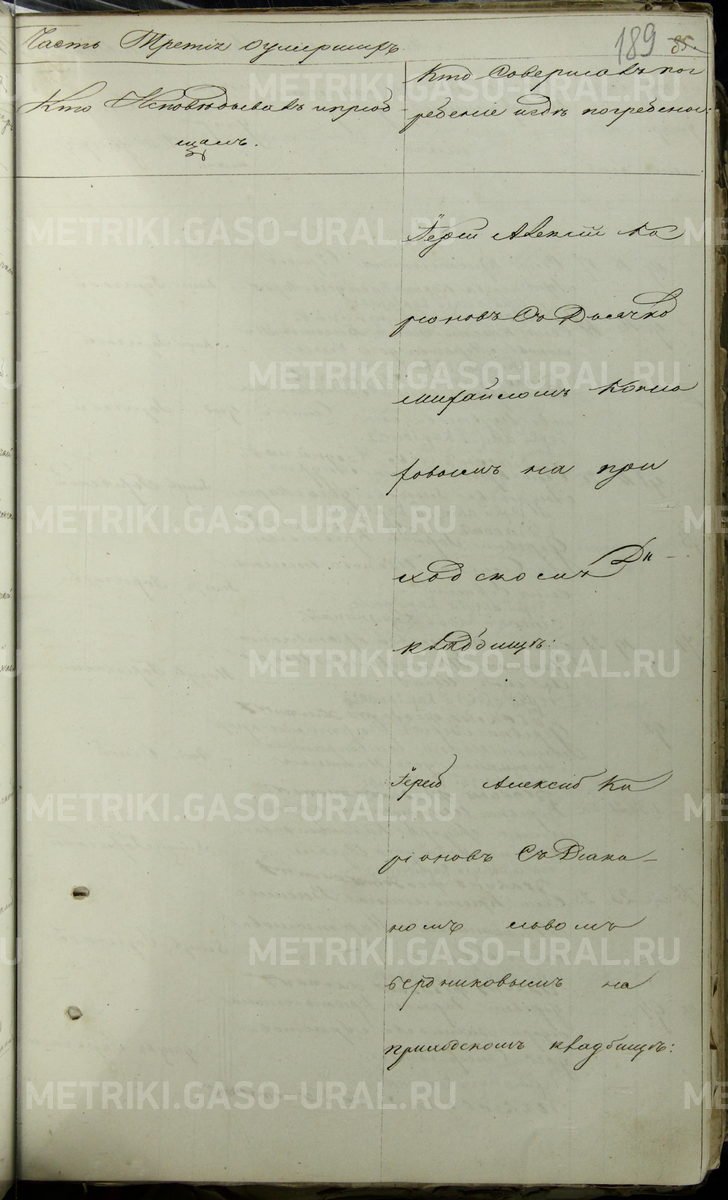 Часть Третія оумершихъ.
189
85.
Кто Исповѣдывалъ и пріоб-
щалъ.
Кто Совершалъ пог
ребеніе и гдѣ погребены:
Іерей Алексій Ка
ріоновъ Съ Дьячко
Михайломъ Копы
ловымъ на при
ходскомъ
кладбищѣ:
Іерей Алексій Ка
ріоновъ Съ Діако-
номъ Львомъ
бердниковымъ на
приходскомъ кладбищѣ:
METRIKI.GASO-URAL.RU